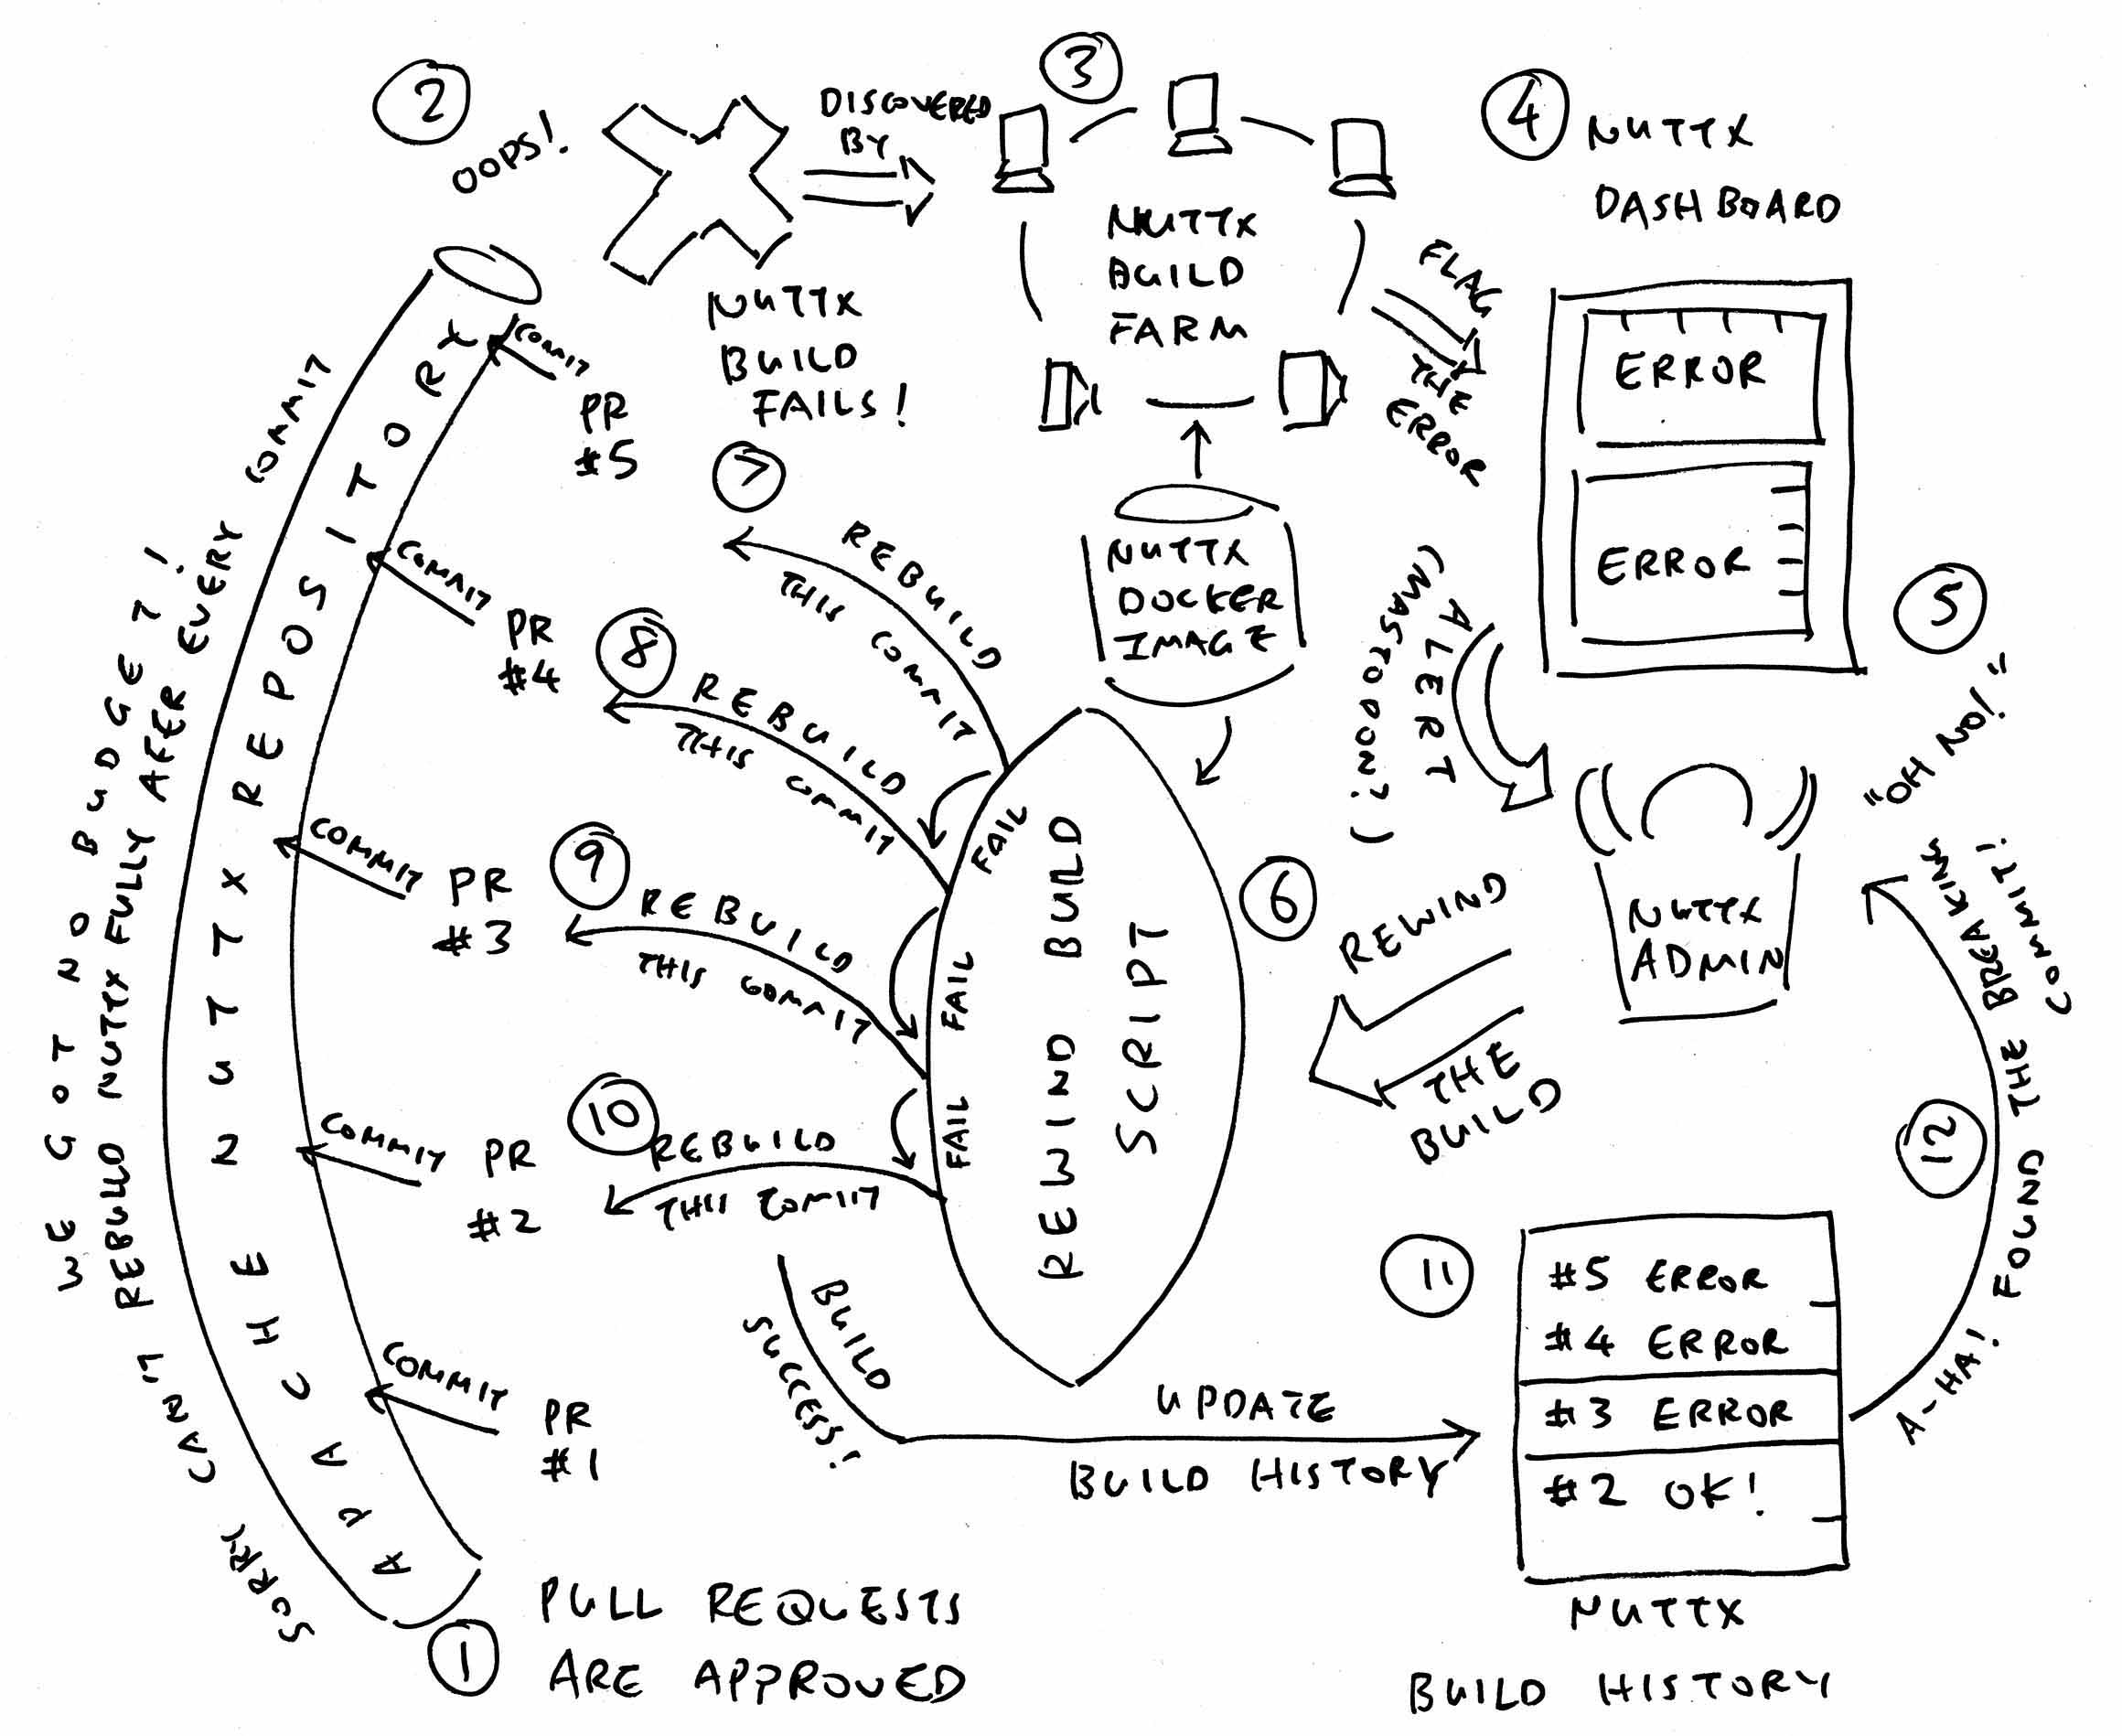 2
OOPS!
NUTTX
BUILD
FAILS!
DISCOVERED
BY
3
NUTTX
BUILD
FARM
FLAG
THE
ERROR
4
NUTTX
DASHBOARD
ERROR
ERROR
NUTTX
DOCKER
IMAGE
ALERT
(MASTODON?)
5
"OH NO!"
NUTTX
ADMIN
6
REWIND
THE
BUILD
REWIND BUILD
SCRIPT
7
REBUILD
THIS COMMIT
FAIL
8
REBUILD
THIS COMMIT
FAIL
9
REBUILD
THIS COMMIT
FAIL
10
REBUILD
THIS COMMIT
BUILD
SUCCESS!
UPDATE
BUILD HISTORY
11
#5 ERROR
#4 ERROR
#3 ERROR
#2 OK!
NUTTX
BUILD HISTORY
12
A-HA! FOUND THE BREAKING
COMMIT!
APACHE NUTTX REPOSITORY
COMMIT
PR
#5
COMMIT
PR
#4
COMMIT
PR
#3
COMMIT
PR
#2
COMMIT
PR
#1
1
PULL REQUESTS
ARE APPROVED
SORRY CAN'T REBUILD NUTTX FULLY AFER EVERY COMMIT
WE GOT NO BUDGET!